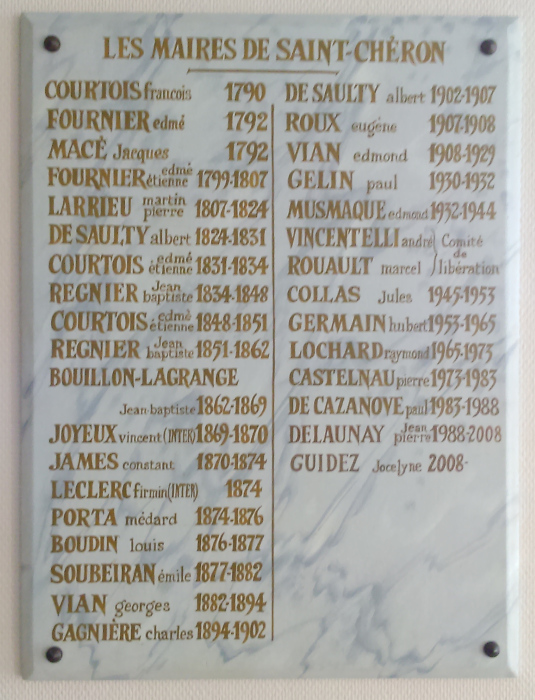 LES MAIRES DE SAINT-CHÉRON
COURTOIS francois 1790
FOURNIER edmé 1792
MACÉ Jacques 1792
FOURNIER edmé étienne 1799-1807
LARRIEU martin pierre 1807-1824
DE SAULTY albert 1824-1831
COURTOIS edmé étienne 1831-1834
REGNIER Jean baptiste 1834-1848
COURTOIS edmé étienne 1848-1851
REGNIER Jean baptiste 1851-1862
BOUILLON-LAGRANGE
Jean-baptiste 1862-1869
JOYEUX vincent (INTER) 1869-1870
JAMES constant 1870-1874
LECLERC firmin (INTER) 1874
PORTA médard 1874-1876
BOUDIN louis 1876-1877
SOUBEIRAN émile 1877-1882
VIAN georges 1882-1894
GAGNIÈRE charles 1894-1902
DE SAULTY albert 1902-1907
ROUX eugène 1907-1908
VIAN edmond 1908-1929
GELIN paul 1930-1932
MUSMAQUE edmond 1932-1944
VINCENTELLI andré Comité
de
ROUAULT marcel libération
COLLAS Jules 1945-1953
GERMAIN hubert 1953-1965
LOCHARD raymond 1965-1973
CASTELNAU pierre 1973-1983
DE CAZANOVE paul 1983-1988
DELAUNAY Jean pierre 1988-2008
GUIDEZ Jocelyne 2008-